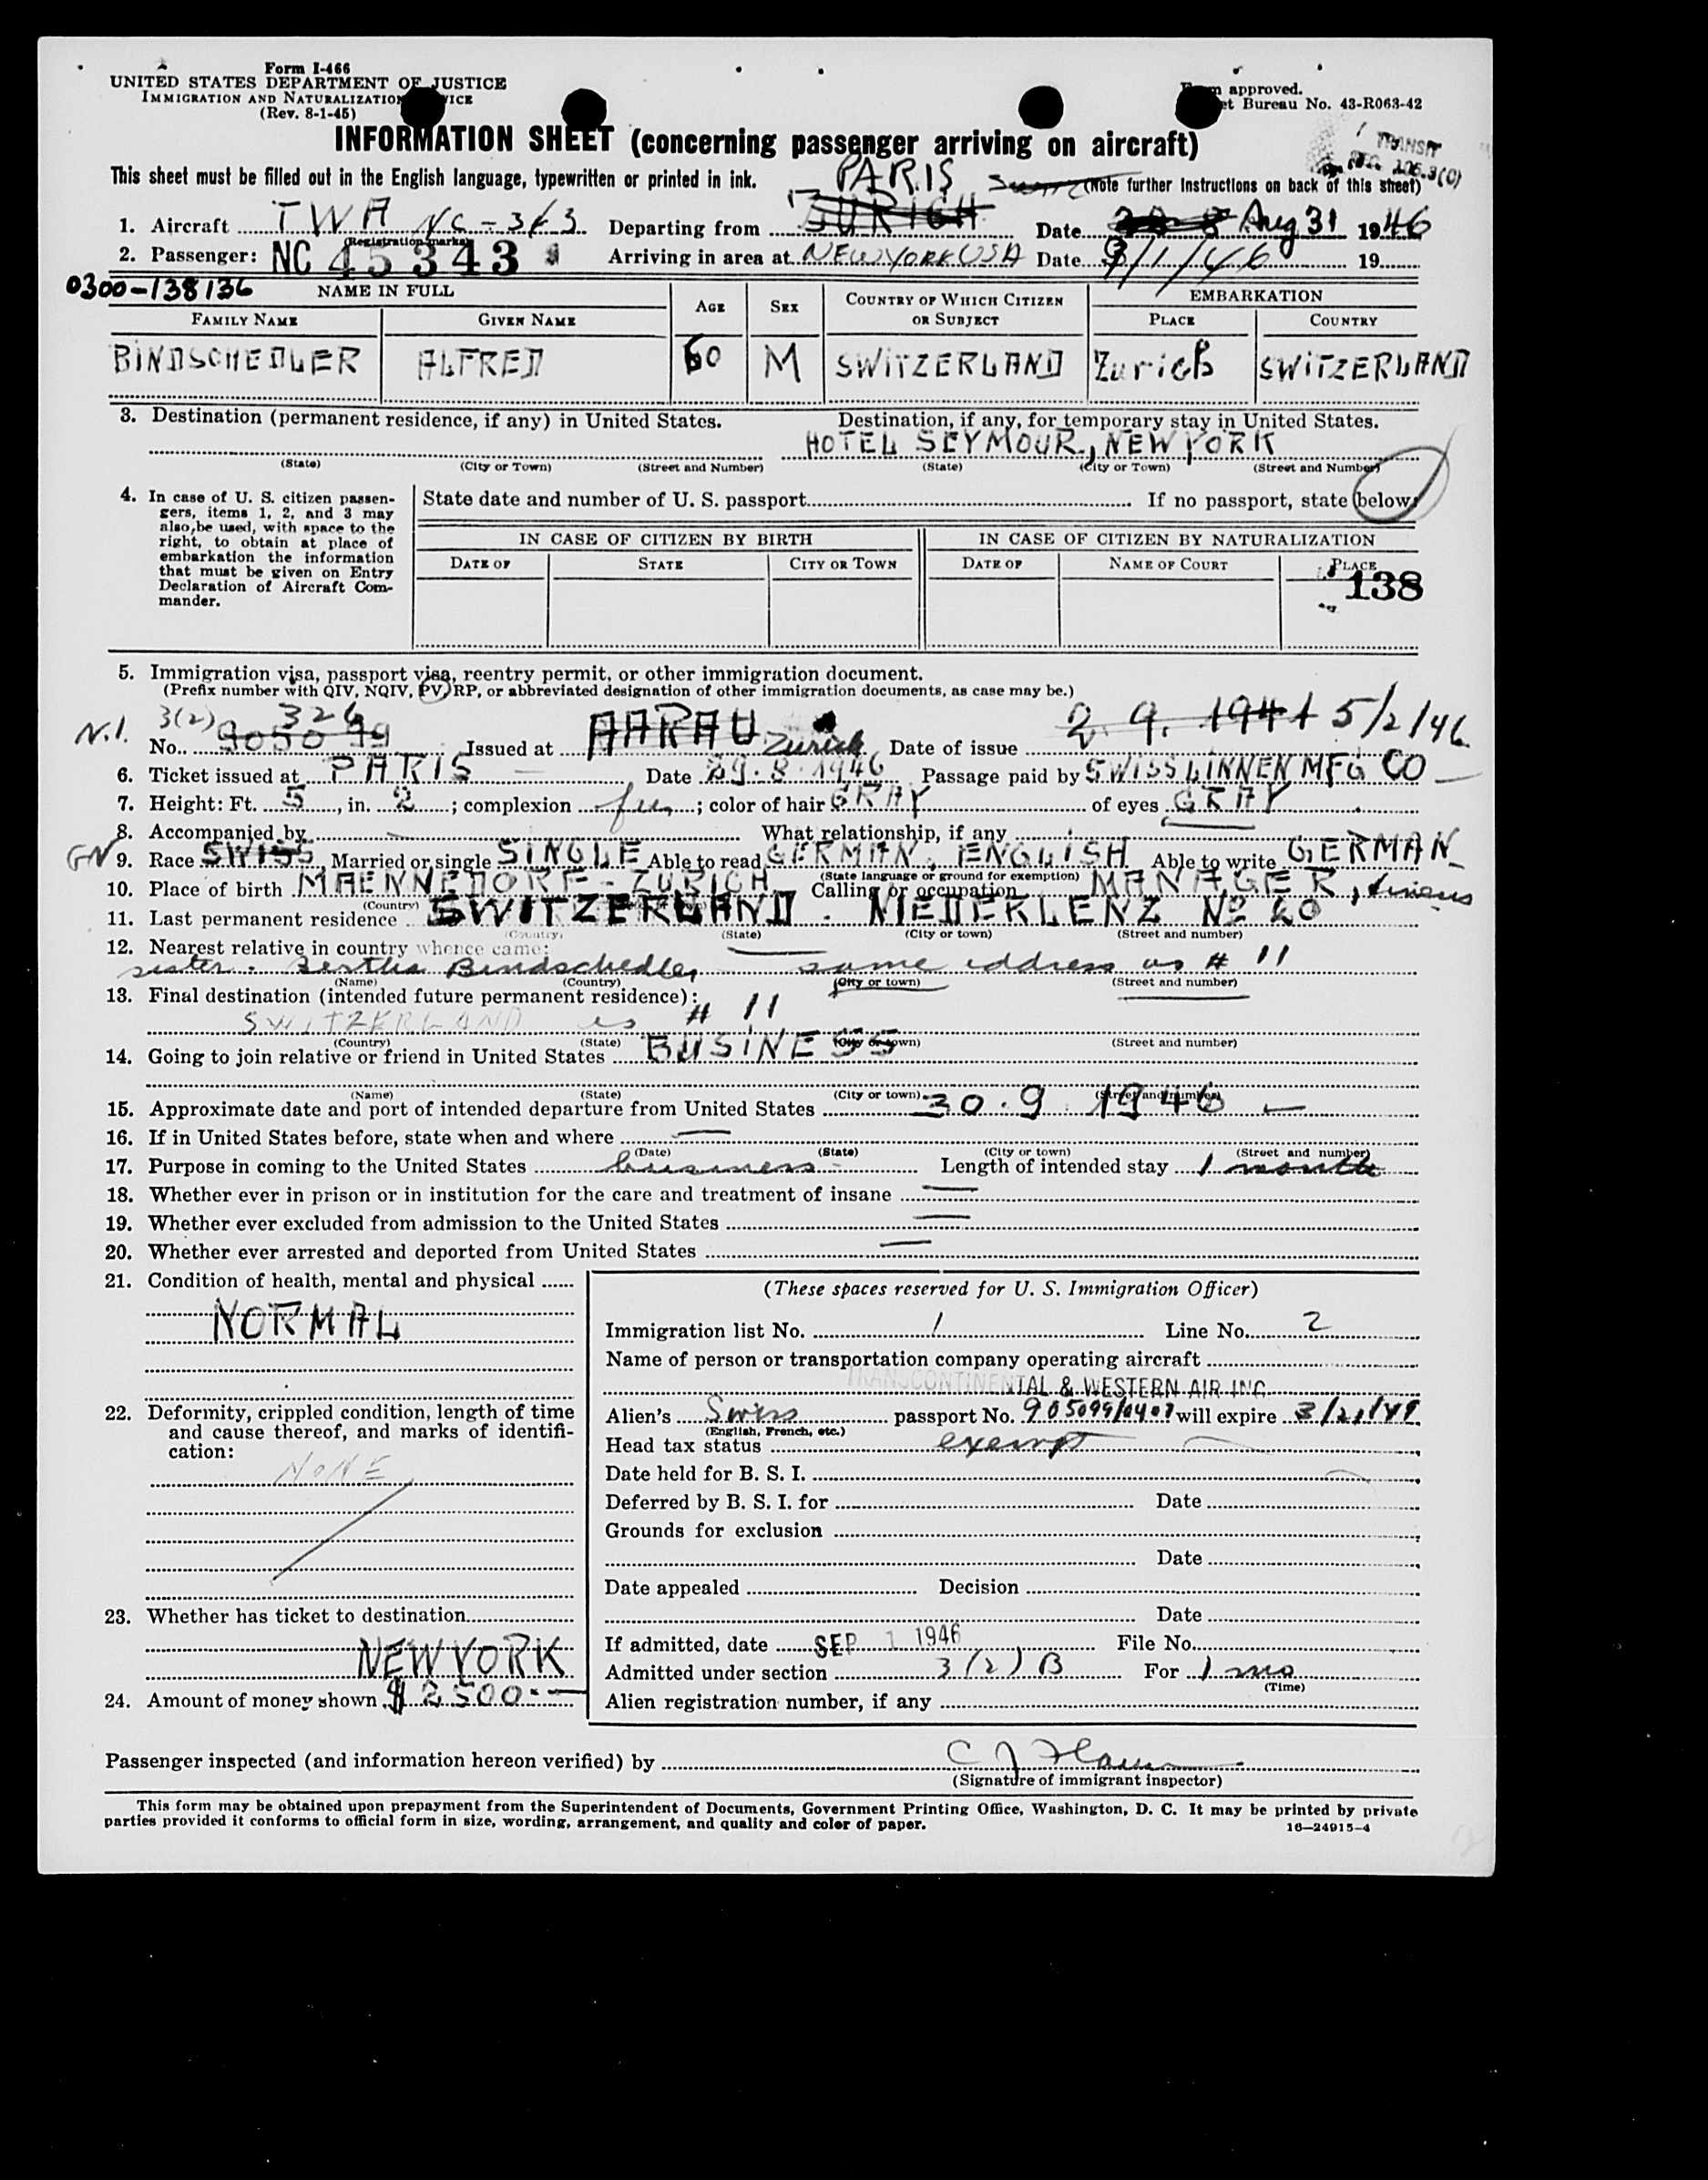 Form I-466
UNITED STATES DEPARTMENT OF JUSTICE
IMMIGRATION AND NATURALIZATION
(Rev. 8-1-45)
approved.
Bureau No. 43-R063-42
TRANSIT
106.3(C)
INFORMATION SHEET (concerning passenger arriving on aircraft)
This sheet must be filled out in the English language, typewritten or printed in ink. PARIS (Note further instructions on back of this sheet)
1. Aircraft TWA NC-343 Departing from ZURICH Date Aug 31 1946
(Registration marks)
2. Passenger: NC 45343 Arriving in area at NEW YORK USA Date 9/1/46 19
0300-138136 NAME IN FULL AGE SEX COUNTRY OF WHICH CITIZEN OR SUBJECT EMBARKATION
FAMILY NAME GIVEN NAME PLACE COUNTRY
BINDSCHEDLER ALFRED 60 M SWITZERLAND Zurich SWITZERLAND
3. Destination (permanent residence, if any) in United States. Destination, if any, for temporary stay in United States.
HOTEL SEYMOUR, NEW YORK
(State) (City or Town) (Street and Number) (State) (City or Town) (Street and Number)
4. In case of U. S. citizen passengers, items 1, 2, and 3 may also be used, with space to the right, to obtain at place of embarkation the information that must be given on Entry Declaration of Aircraft Commander.
State date and number of U. S. passport If no passport, state below
IN CASE OF CITIZEN BY BIRTH IN CASE OF CITIZEN BY NATURALIZATION
DATE OF STATE CITY OR TOWN DATE OF NAME OF COURT PLACE
138
5. Immigration visa, passport visa, reentry permit, or other immigration document.
(Prefix number with QIV, NQIV, PV, RP, or abbreviated designation of other immigration documents, as case may be.)
N.I. 3(2) 326
No. 905099 Issued at AARAU Zurich Date of issue 2. 9. 1941 5/2/46
6. Ticket issued at PARIS Date 29.8.1946 Passage paid by SWISS LINNEN MFG CO
7. Height: Ft. 5, in. 2; complexion; color of hair GRAY of eyes GRAY
8. Accompanied by What relationship, if any
GN 9. Race SWISS Married or single SINGLE Able to read GERMAN, ENGLISH Able to write GERMAN
(State language or ground for exemption)
10. Place of birth MAENNEDORF - ZURICH Calling or occupation MANAGER, linens
(Country)
11. Last permanent residence SWITZERLAND. NIEDERLENZ No 40
(Country) (State) (City or town) (Street and number)
12. Nearest relative in country whence came:
sister. Bertha Bindschedler same address as # 11
(Name) (Country) (City or town) (Street and number)
13. Final destination (intended future permanent residence):
SWITZERLAND as # 11
(Country) (State) (City or town) (Street and number)
14. Going to join relative or friend in United States BUSINESS
(Name) (State) (City or town) (Street and number)
15. Approximate date and port of intended departure from United States 30.9 1946
16. If in United States before, state when and where
(Date) (State) (City or town) (Street and number)
17. Purpose in coming to the United States business Length of intended stay 1 month
18. Whether ever in prison or in institution for the care and treatment of insane
19. Whether ever excluded from admission to the United States
20. Whether ever arrested and deported from United States
21. Condition of health, mental and physical
NORMAL
22. Deformity, crippled condition, length of time and cause thereof, and marks of identification:
NONE
23. Whether has ticket to destination
NEW YORK
24. Amount of money shown $ 2500.-
(These spaces reserved for U. S. Immigration Officer)
Immigration list No. 1 Line No. 2
Name of person or transportation company operating aircraft
TRANSCONTINENTAL & WESTERN AIR INC.
Alien's Swiss passport No. will expire
(English, French, etc.)
Head tax status exempt
Date held for B. S. I.
Deferred by B. S. I. for Date
Grounds for exclusion
Date
Date appealed Decision
Date
If admitted, date SEP 1 1946 File No.
Admitted under section 3(2)B For 1 mo
(Time)
Alien registration number, if any
Passenger inspected (and information hereon verified) by
(Signature of immigrant inspector)
This form may be obtained upon prepayment from the Superintendent of Documents, Government Printing Office, Washington, D. C. It may be printed by private
parties provided it conforms to official form in size, wording, arrangement, and quality and color of paper. 16—24915-4